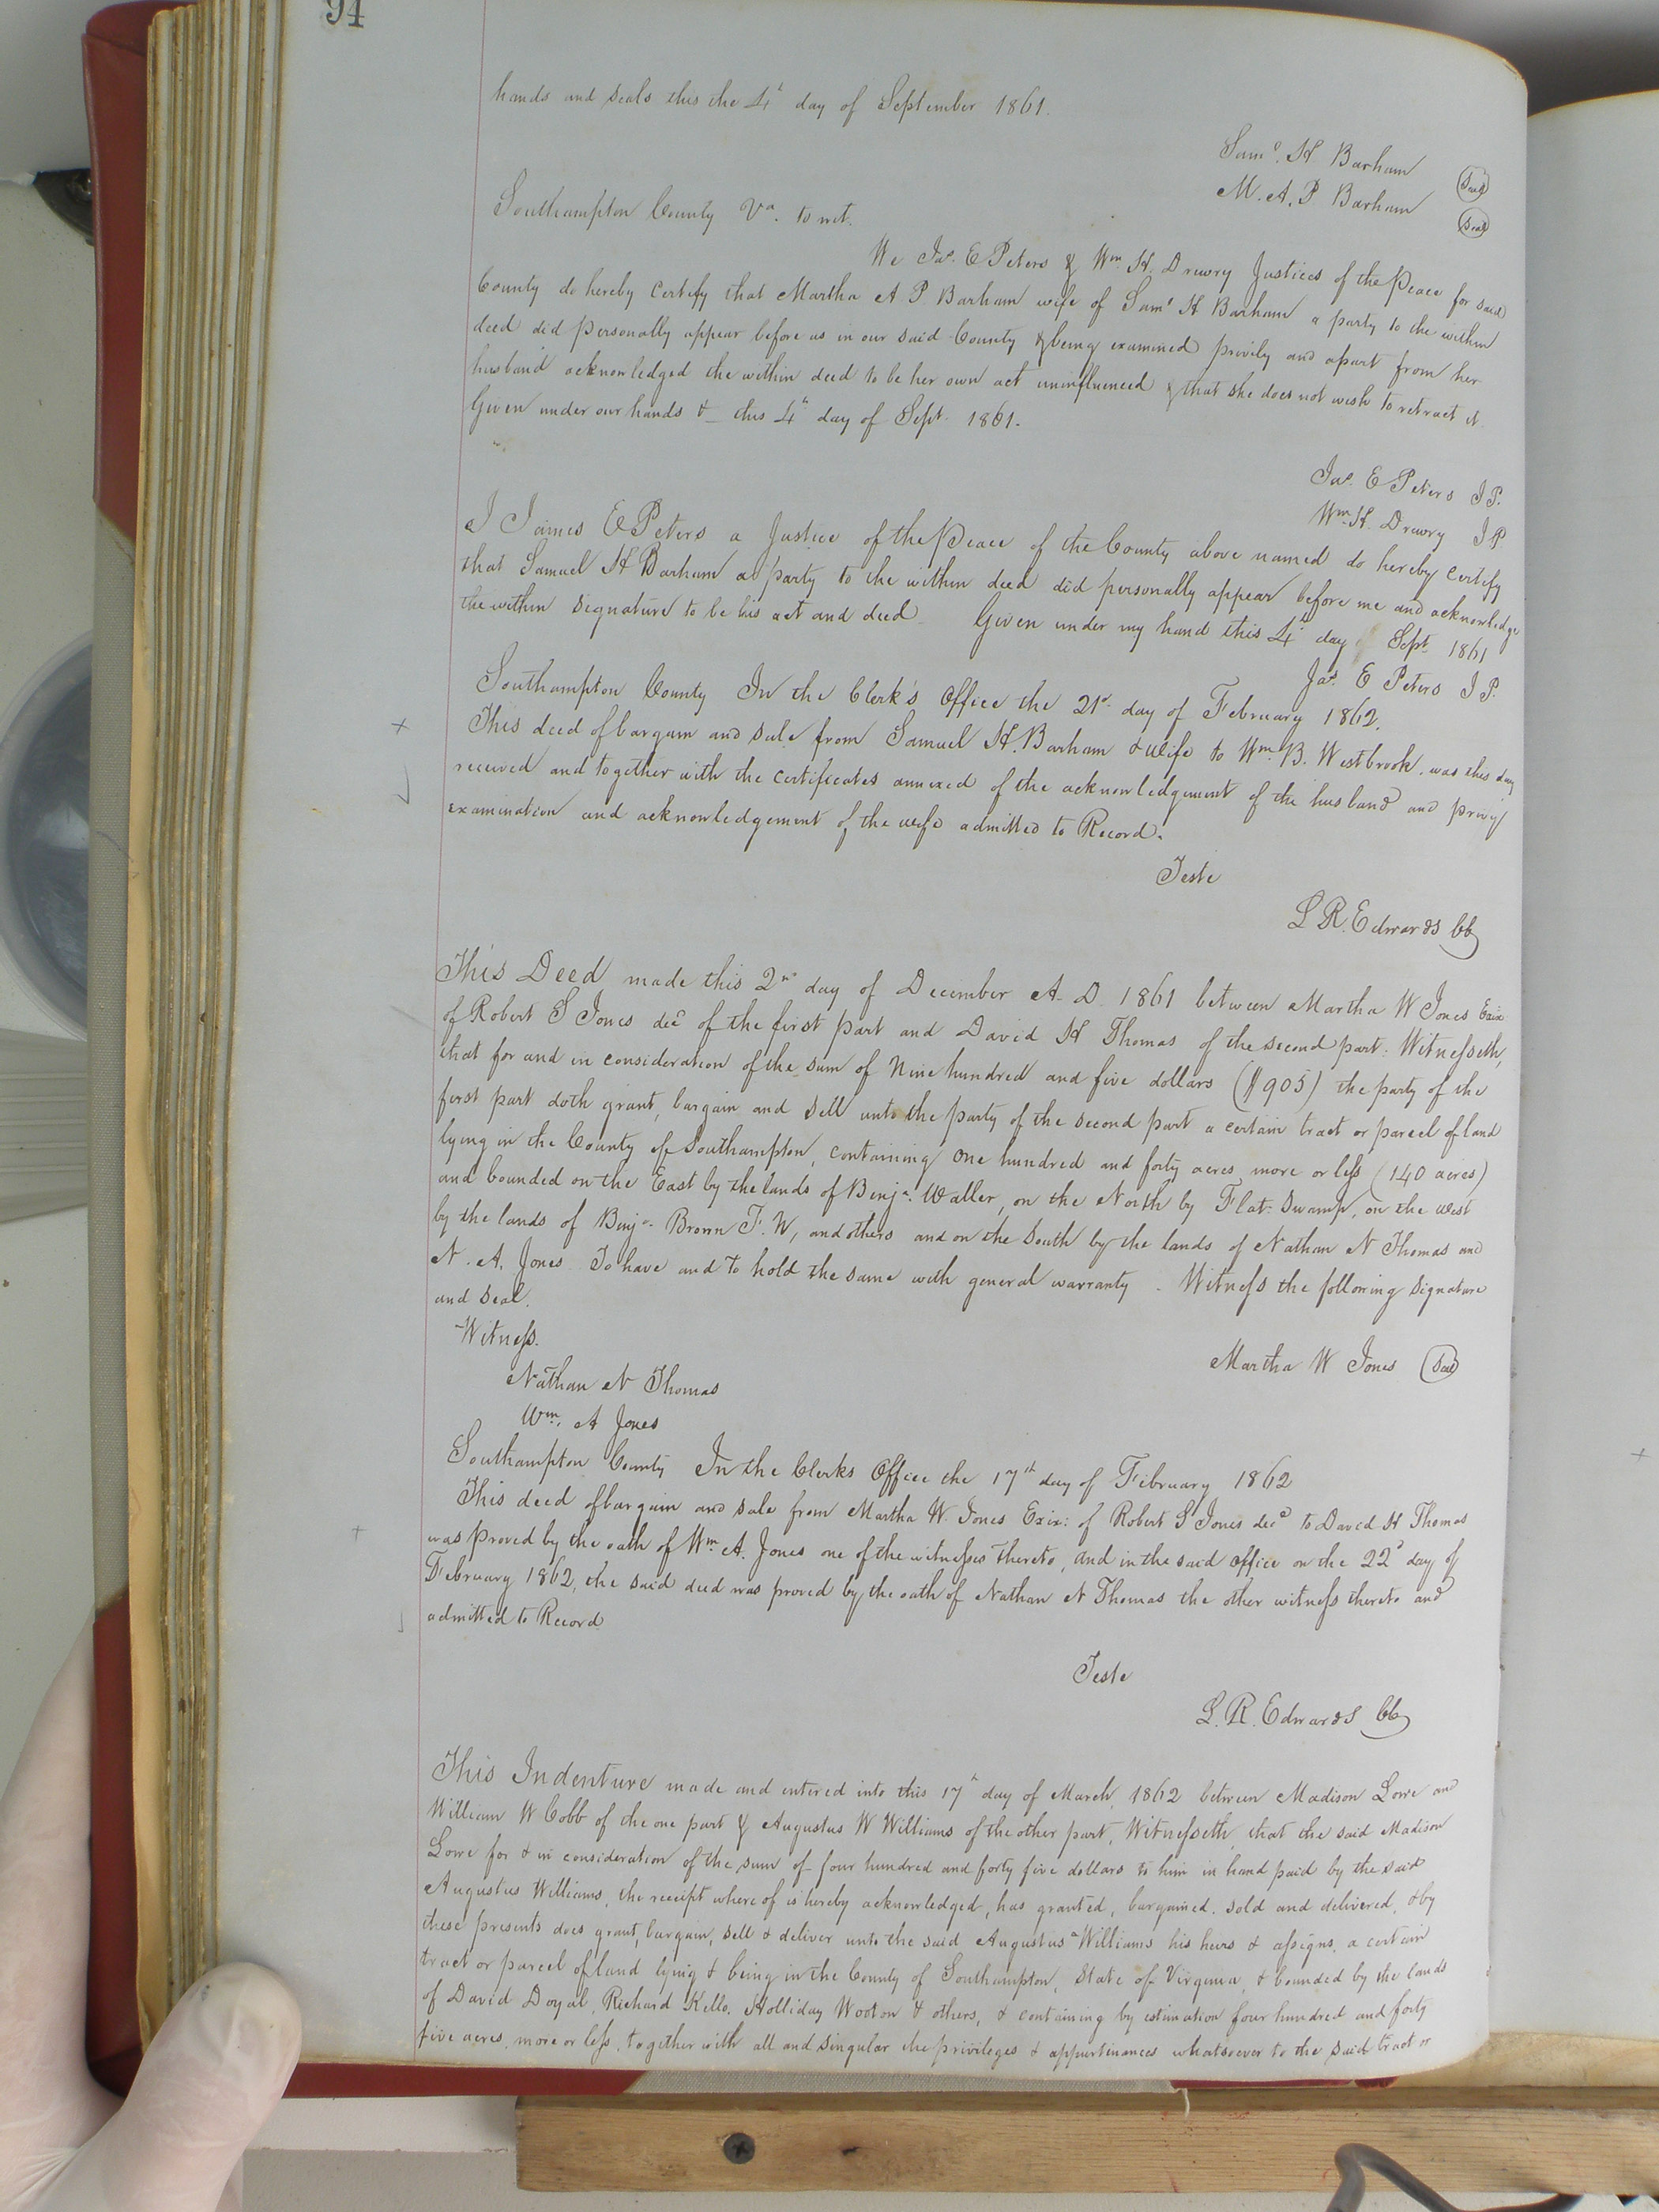 94
hands and seals this the 4th day of September 1861.
Saml. H. Barham (Seal)
M. A. P Barham (Seal)
Southampton County Va. to wit.
We Jas. E Peters & Wm. H. Drewry Justices of the Peace for said
County do hereby Certify that Martha A P Barham wife of Saml H Barham a party to the within
deed did personally appear before us in our said County & being examined privily and apart from her
husband acknowledged the within deed to be her own act uninfluenced & that she does not wish to retract it.
Given under our hands & this 4th day of Sept. 1861.
Jas. E Peters J P.
Wm. H. Drewry J P
I James E Peters a Justice of the Peace of the County above named do hereby certify
that Samuel H Barham a party to the within deed did personally appear before me and acknowledge
the within signature to be his act and deed. Given under my hand this 4th day Sept. 1861
Jas. E Peters J P.
Southampton County In the Clerk's Office the 21st day of February 1862.
This deed of bargain and sale from Samuel H. Barham & wife to Wm. B. Westbrook, was this day
received and together with the certificates annexed of the acknowledgement of the husband and privy
examination and acknowledgement of the wife admitted to Record.
Teste
L R. Edwards CC
This Deed made this 2nd day of December A. D. 1861 between Martha W Jones Exix
of Robert S Jones decd of the first part and David H Thomas of the second part: Witnesseth,
that for and in consideration of the sum of Nine hundred and five dollars ($905) the party of the
first part doth grant, bargain and sell unto the party of the second part a certain tract or parcel of land
lying in the County of Southampton, containing One hundred and forty acres more or less (140 acres)
and bounded on the East by the lands of Benja. Waller, on the North by Flat Swamp, on the west
by the lands of Benja. Brown F. W, and others and on the South by the lands of Nathan N Thomas and
N. A. Jones. To have and to hold the same with general warranty. Witness the following signature
and seal.
Witness.
Martha W Jones (Seal)
Nathan N Thomas
Wm. A Jones
Southampton County In the Clerks Office the 17th day of February 1862
This deed of bargain and sale from Martha W. Jones Exix: of Robert S Jones decd to David H Thomas
was proved by the oath of Wm A. Jones one of the witnesses thereto, and in the said office on the 22d day of
February 1862, the said deed was proved by the oath of Nathan N Thomas the other witness thereto and
admitted to Record
Teste
L. R. Edwards CC
This Indenture made and entered into this 17th day of March, 1862 between Madison Lowe and
William W Cobb of the one part & Augustus W Williams of the other part, Witnesseth, that the said Madison
Lowe for & in consideration of the sum of four hundred and forty five dollars to him in hand paid by the said
Augustus Williams, the receipt where of is hereby acknowledged, has granted, bargained, sold and delivered, & by
these presents does grant, bargain, sell & deliver unto the said Augustus Williams his heirs & assigns, a certain
tract or parcel of land lying & being in the County of Southampton, State of Virginia, & bounded by the lands
of David Doyal, Richard Kello, Holliday Wooton & others, & containing by estimation four hundred and forty
five acres, more or less, together with all and singular the privileges & appurtenances whatsoever to the said tract or